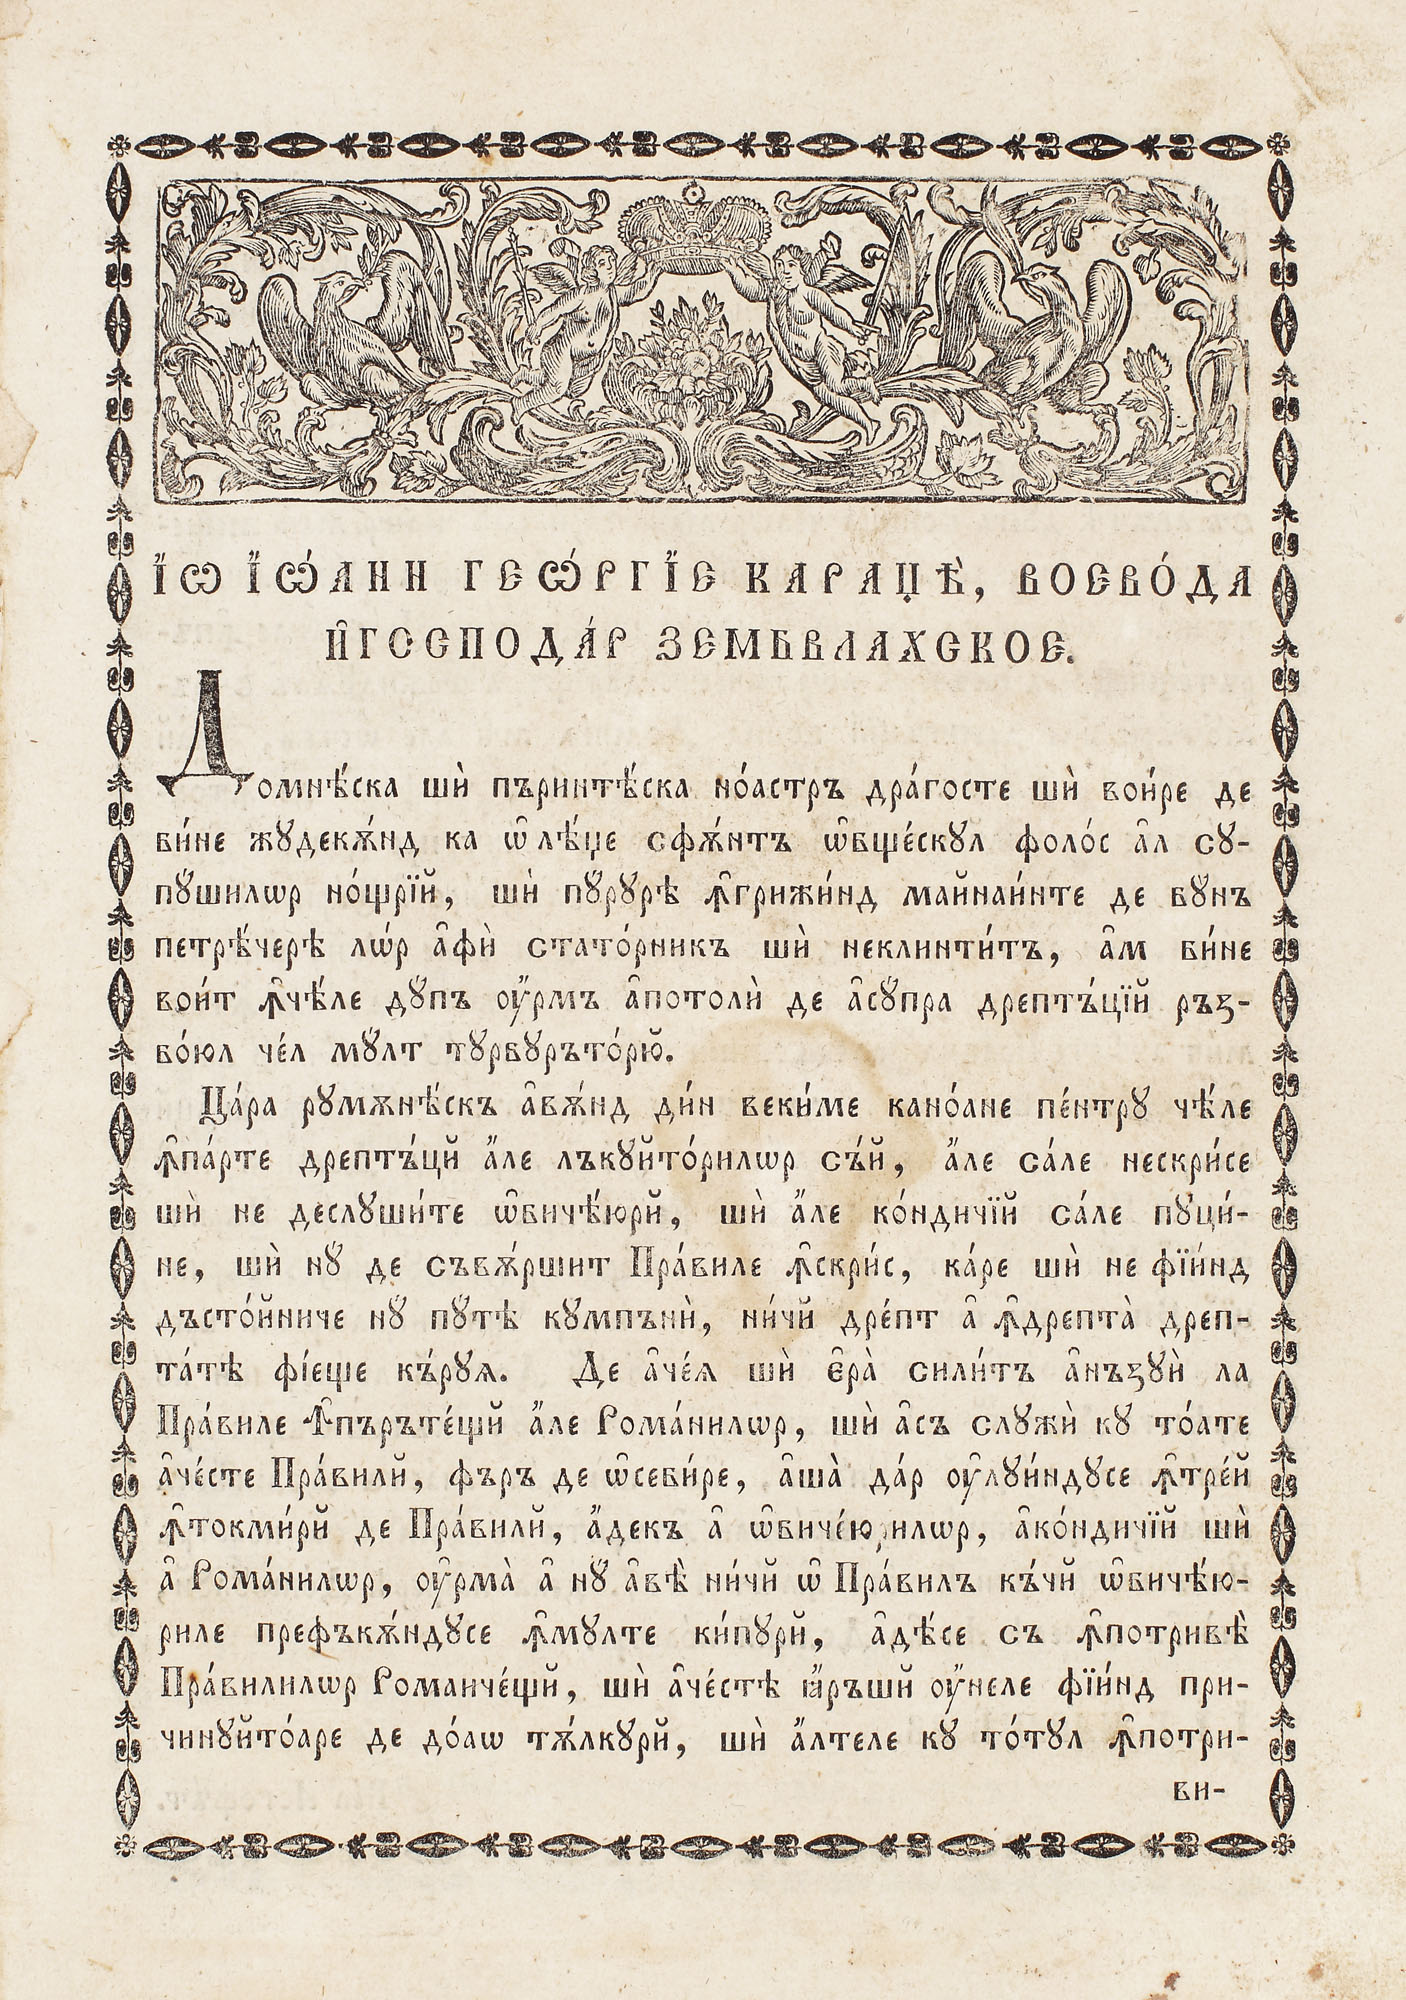 І҆ѽ І҆ѡа́нн Геѡ́ргїе Караџѣ̀, Воево́да
и҆ Господа́р Земѣвлахскоє.
Домнѣ́ска шѝ пъринтѣ́ска но́астръ дра́госте шѝ вои́ре де
би́не жꙋдекѫ́нд ка ѡ҆ лѣ́џе сфѫ́нтъ ѡ҆бще́скꙋл фоло́с а҆л сꙋ-
пꙋ́шилѡр но́щрїй, шѝ пꙋ́рꙋрѣ ꙟ҆грижи́нд майнаи́нте де бꙋ́нъ
петрѣ́черѣ лѡ́р а҆фѝ стато́рникъ шѝ неклинти́тъ, а҆м би́не
вои́т ꙟ҆чѣ́ле дꙋпъ оу҆́рмъ а҆потолѝ де а҆сꙋ́пра дрептъ́цїй ръз-
бо́юл че́л мꙋ́лт тꙋрбꙋръто́рю̆.
Ца́ра рꙋмѫнѣ́скъ а҆вѫ́нд ди́н веки́ме кано́ане пе́нтрꙋ чѣ́ле
ꙟ҆па́рте дрептъ́цй а҆́ле лъкꙋйто́рилѡр съ́й, а҆́ле са́ле нескри́се
шѝ не деслꙋши́те ѡ҆бичѣ́юрй, шѝ а҆́ле ко́ндичїй са́ле пꙋци́-
не, шѝ нꙋ́ де съвѫ́ршит Пра́виле ꙟ҆скри́с, ка́ре шѝ не фїи́нд
дъсто́йниче нꙋ́ пꙋ́тѣ кꙋмпънѝ, ни́чй дре́пт а҆ ꙟ҆дрепта̀ дреп-
та́тѣ фїе́ще къ́рꙋѧ. Де а҆че́ѧ шѝ є҆ра̀ сили́тъ а҆нъзꙋѝ ла
Пра́виле Ꙟ҆пъръте́щй а҆́ле Рома́нилѡр, шѝ а҆съ слꙋжѝ кꙋ то́ате
а҆че́сте Пра́вилй, фъръ де ѡ҆себи́ре, а҆ша̀ да́р оу҆лꙋи́ндꙋсе ꙟ҆тре́й
ꙟ҆токми́рй де Пра́вилй, а҆́декъ а҆ ѡ҆биче́юрилѡр, а҆ко́ндичїй шѝ
а҆ Рома́нилѡр, оу҆рма̀ а҆ нꙋ́ а҆вѣ̀ ни́чй ѡ҆ Пра́вилъ къ́чй ѡ҆бичѣ́ю-
риле префъкѫ́ндꙋсе ꙟ҆мꙋлте ки́пꙋрй, а҆дѣ́се съ ꙟ҆потривѣ̀
Пра́вилилѡр Романче́щй, шѝ а҆че́стѣ ꙗ҆́ръшй оу҆́неле фїи́нд при-
чинꙋйто́аре де до́аѡ тѫ́лкꙋрй, шѝ а҆́лтеле кꙋ то́тꙋл ꙟ҆потри-
ви-